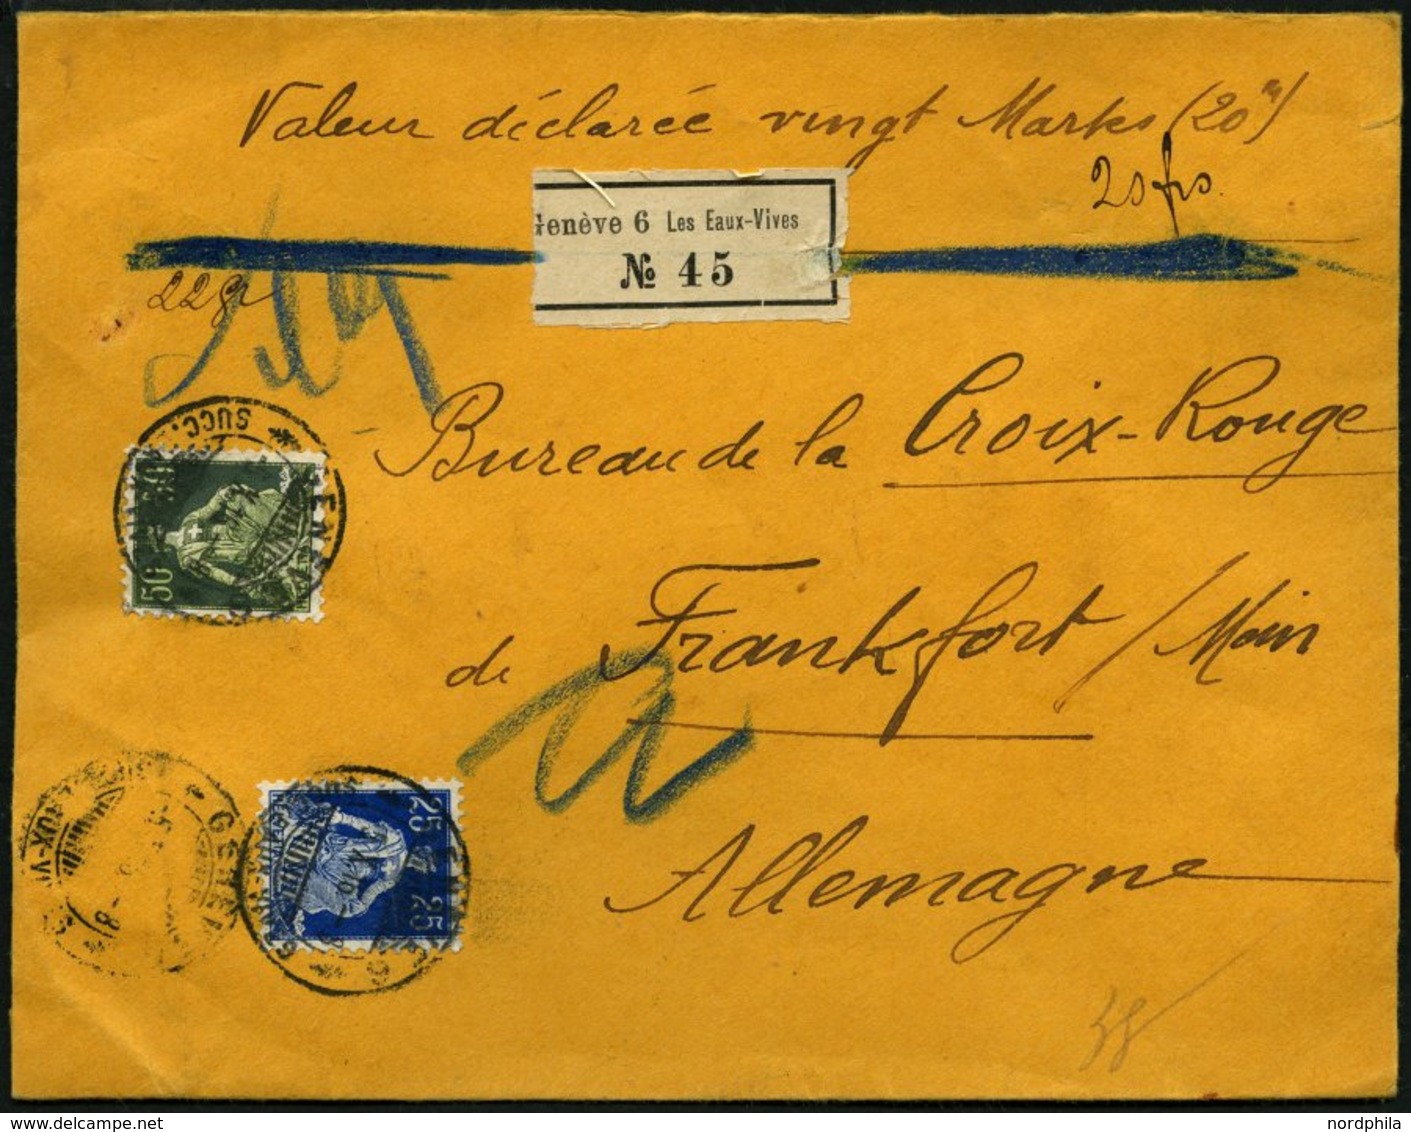 Valeur déclarée vingt Marks (20 m)
25 frs.
Genève 6 Les Eaux-Vives
№ 45
22 gr
Bureau de la Croix-Rouge
de Frankfort / Main
Allemagne
50
50
SUCC.
25
25
GENÈVE
58
nordphila